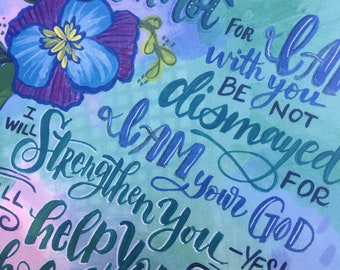 not FOR I AM
with you
BE NOT
dismayed
FOR
I AM your GOD
I WILL
Strengthen You -YES!
help You